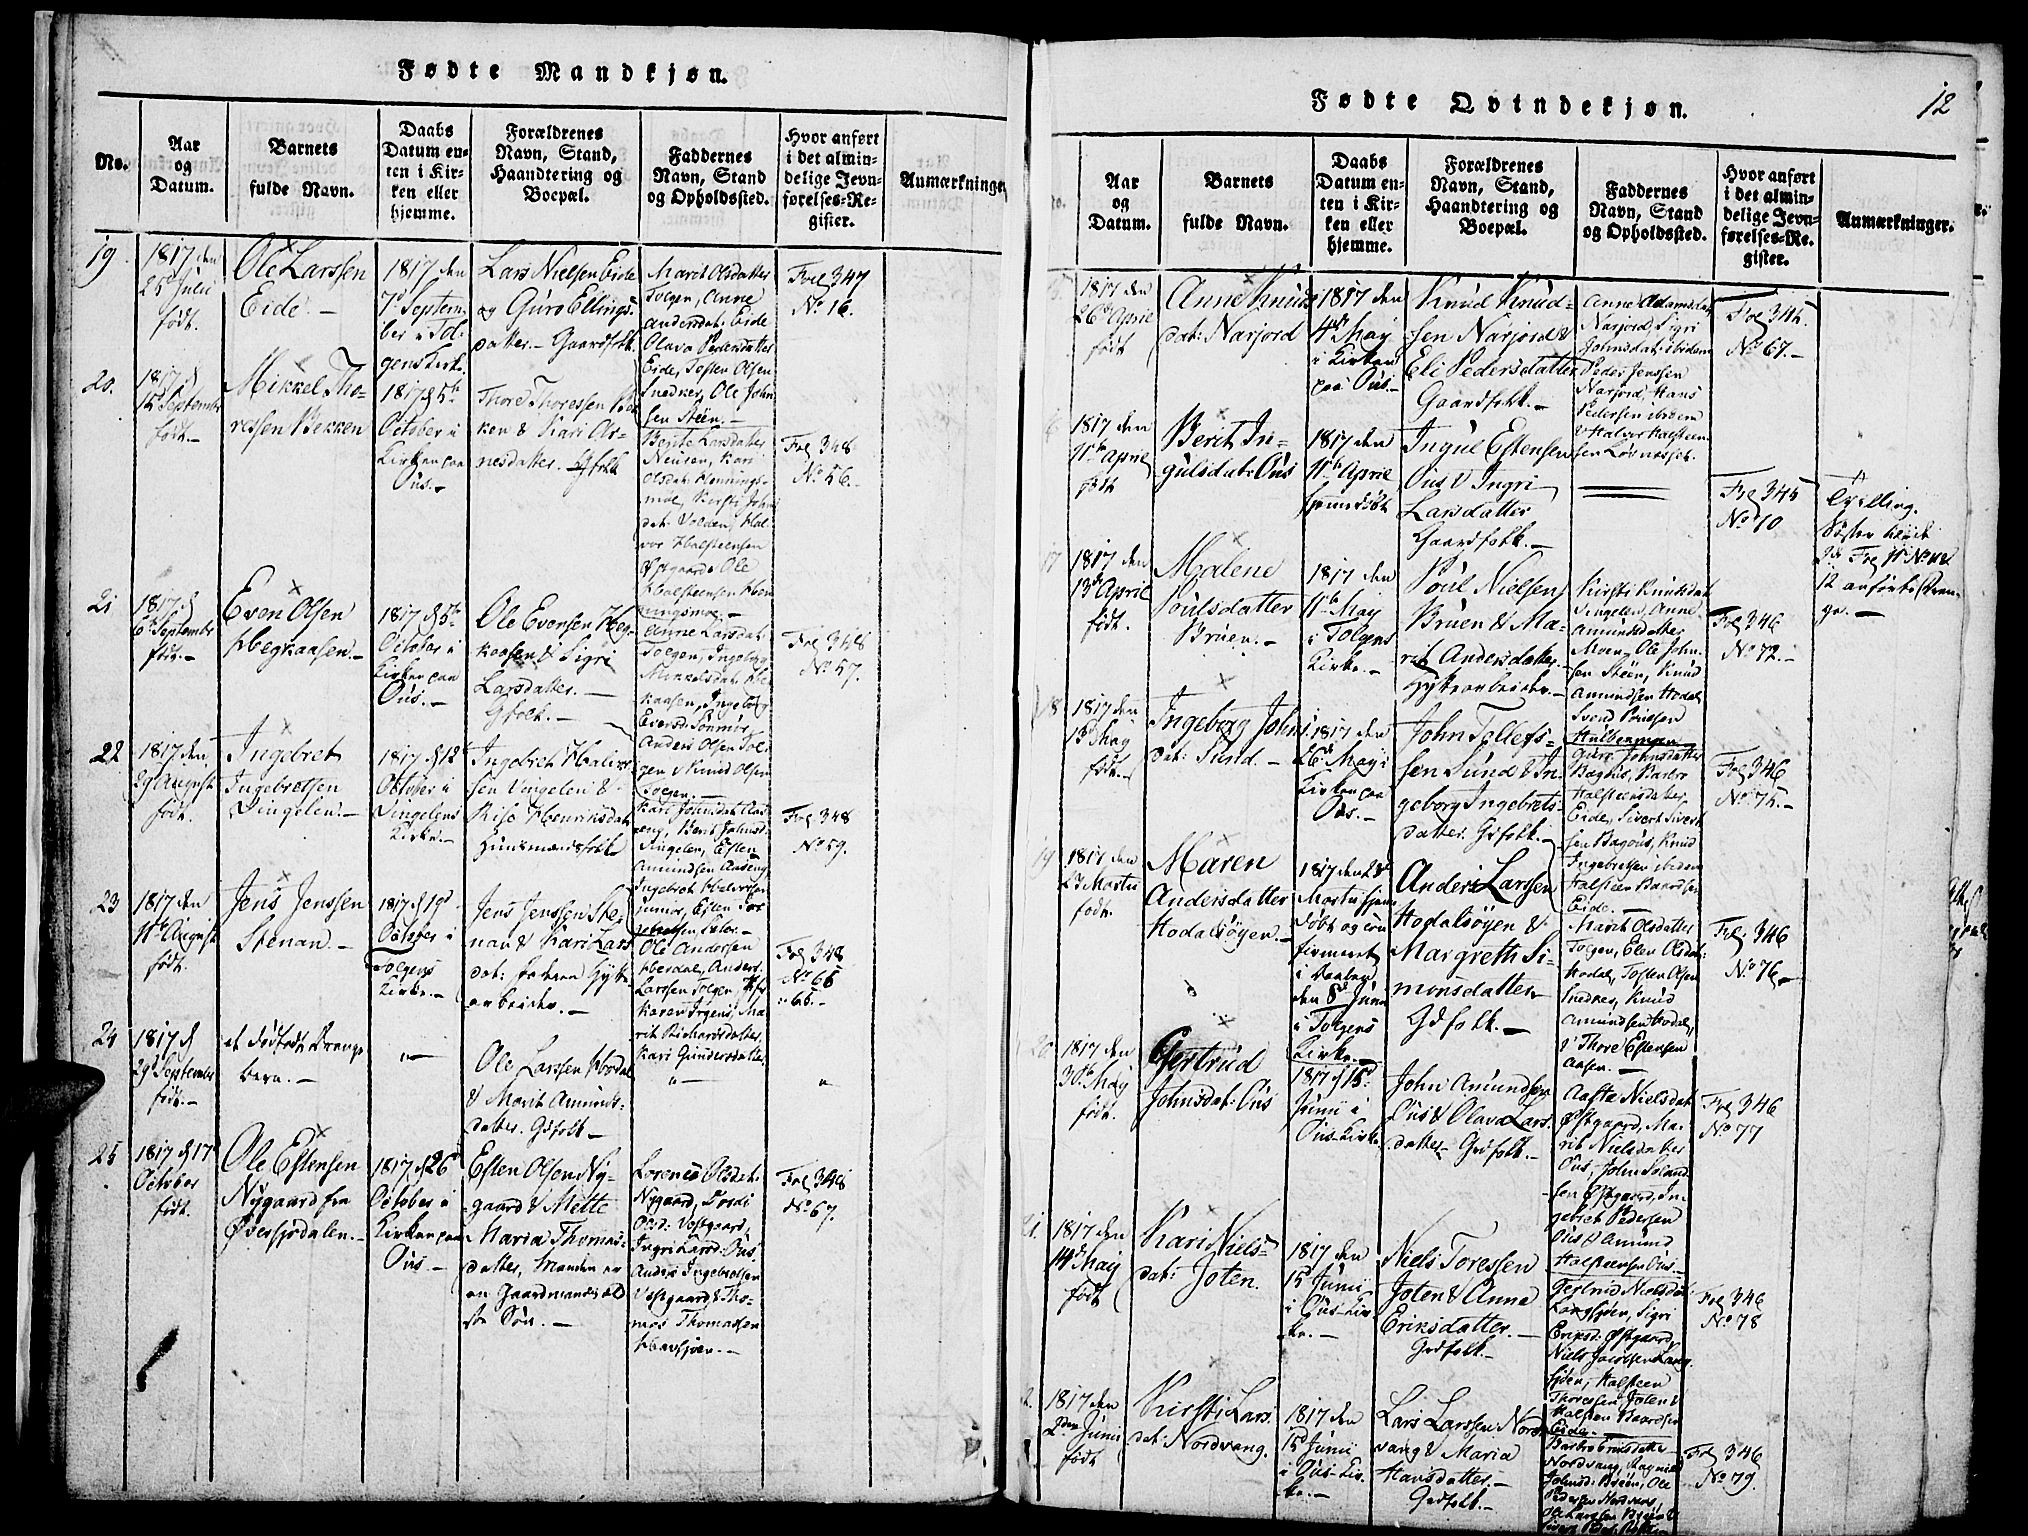 Fødte Mandkjøn.
No.
Aar
og
Datum.
Barnets
fulde Navn.
Daabs
Datum en-
ten i Kir-
ken eller
hjemme.
Forældrenes
Navn, Stand,
Haandtering og
Boepæl.
Faddernes
Navn, Stand
og Opholdssted.
Hvor anført
i det almin-
delige Jevn-
førelses-Re-
gister.
Anmærkninger
19
1817 den
25 Julii
født.
Ole Larssen
Eide. -
1817 den
7d Septem-
ber i Tol-
gens Kirk.
Lars Nielsen Eide
og Guro Ellings-
datter. - Gaardfolk
Marit Olsdatter
Tolgen, Anne
Andersdat: Eide
Olava Pedersdatter
Eide, Tosten Olsen
Snedker, Ole John
sen Steen. -
Fol 347
No 16.
20.
1817 d
15 September
født. -
Mikkel Tho-
ressen Bekken
1817 d 5te
October i
Kirken paa
Ous. -
Thore Thoressen Bek
ken & Kari Ole-
nesdatter. Gfolk
Larsdatter
Kari
Olsdat: Hennings-
moe, Kirsti John
dat: Volden, Hal-
vor Halsteensen
Østgaard & Ole
Halsteensen Hen
ningsmoe. -
Fol 348
No 56. -
21
1817 d
6te Septembr
født. -
Even Olsen
Hegkaasen. -
1817 d 5te
October i
Kirken paa
Ous. -
Ole Evensen Heg-
kaasen & Sigri
Larsdatter. -
Gfolk. -
Anne Larsdat:
Tolgen, Ingeborg
Mikkelsdat: He
kaasen, Ingeborg
Anders Olsen Tol-
gen & Knud Olsen
Tolgen. -
Fol 348
No 57.
22
1817 den
29 August
født.
Ingebret
Ingebretsen
Vingelen. -
1817 d 12
October i
Vingelens
Kirke. -
Ingebret Halvor
sen Vingelen &
Rise Henriksdat:
Huusmandsfolk
Kari Jonsdat: Aas
eng, Berit Johnsd:
Vingelen, Esten
Amundsen Aaseng
Ingebret Halvorsen
junior, Esten
Fol 348
No 59.
23
1817 den
11te August
født.
Jens Jenssen
Stenan. -
1817 d 19d
October i
Tolgens
Kirke. -
Jens Jenssen Ste-
nan & Kari Lars
dat: Hytt-
arbeider. -
Ole Andersen
Herdal, Anders
Larssen Tolgen,
Karen Irgens, Ma-
rit Richardsdatter,
Kari Gundersdatter
Fol 348
No 65
& 66. -
24
1817 d
29 September
født. -
et dødfødt Drenge
barn. -
"
Ole Larssen Hodal
& Marit Amunds-
datter. Gdfolk -
" -
"
25
1817 d 17d
October
født.
Ole Estensen
Nygaard fra
Øversjødalen. -
1817 d 26d
October i
Kirken paa
Ous. -
Esten Olsen Ny-
gaard & Mette
Maria Thomas-
datter, Manden er
en Gaardmands æld
ste Søn. -
Lorence Olsdat:
Nygaard, Dordi
Olsd: Vestgaard,
Ingri Larsd: Ous
Anders Ingebretsen
Vestgaard & Tho-
mas Thomassen
Havsjøen. -
Fol 348
No 67.
Fødte Qvindekjøn.
12
Aar
og
Datum.
Barnets
fulde Navn.
Daabs
Datum en-
ten i Kir-
ken eller
hjemme.
Forældrenes
Navn, Stand,
Haandtering og
Boepæl.
Faddernes
Navn, Stand
og Opholdssted.
Hvor anført
i det almin-
delige Jevn-
førelses-Re-
gister.
Anmærkninger.
1817 den
26d April
født
Anne Knuds
dat: Narjord
1817 den
4de May
i Kirken
paa Ous. -
Knud Knud-
sen Narjord &
Eli Pedersdatter
Gaardfolk. -
Anne Adamsdat
Narjord, Sigri
Johnsdat: ibidem
Peder Jenssen
Narjord, Hans
Pedersen ibidem
& Halvor Halsteen-
sen
Fol 345
No 67. -
1817 den
11te April
født
Berit In-
gulsdat: Ous
1817 den
11te April
hjemmedøbt
Ingul Estensen
Ous & Ingri
Larsdatter
Gaardfolk. -
Fol 345
No 70
Tvilling.
12 anførte Dren-
ge. -
17
1817 den
13de April
født.
Malene
Poulsdatter
Bruen. -
1817 den
11te May
i Tolgens
Kirke. -
Poul Nielsen
Bruen & Ma-
rit Andersdatter. -
Hyttearbeider. -
Kirsti Knudsdat
Vingelen, Anne
Amundsdatter
Moen, Ole John-
sen Steen, Knud
Amundsen Hodal
Svend
Fol 346
No 72. -
18
1817 den
13d May
født. -
Ingeborg Johns
dat: Sund. -
1817 den
26d May i
Kirken paa
Ous. -
John Tollefs-
sen Sund & In-
geborg Ingebrets-
datter. Gdfolk. -
Guro Johnsdatter
Bagous, Barbro
Halsteensdatter
Eide, Sivert Sivert
sen Bagous, Knud
Ingebretsen ibidem
Halsteen Baardsen
Eide. -
Fol 346
No 75. -
19
1817 den
23 Martii
født.
Maren
Andersdatter
Hodalsøyen -
1817 den 28
Martii hjem-
døbt og con
firmeret
i Daaben
den 8d Junii
i Tolgens
Kirke -
Anders Larssen
Hodalsøyen &
Margreth Si-
monsdatter. -
Gdfolk. -
Marit Olsdatter
Tolgen, Elen Olsdat:
Hodal, Tosten Olsen
Snedker, Knud
Amundsen Hodal,
& Thore Estensen
Aasen. -
Fol 346
No 76. -
20
1817 den
30te May
født.
Gertrud
Johnsdat: Ous
1817 d 15d
Junii i
Ous-Kirke
John Amundsen
Ous & Olava Lars
datter. Gdfolk. -
Aasta Nielsdat:
Østgaard, Ma-
rit Nielsdatter
Ous, John
sen Østgaard, In-
gebret Pedersen
Ous & Amund
Halsteensen Ous. -
Fol 346
No 77
21.
1817 den
14de May
født
Kari Niels-
dat: Joten.
1817 den
15d Junii
i Ous-Kir-
ke. -
Niels Toressen
Joten & Anna
Eriksdatter. -
Gdfolk. -
Gertrud Nielsdat
Langsjøen, Sigri
Eriksd: Østgaard,
Niels Jacobsen Lang-
sjøen, Halsteen
Thoressen Joten &
Halsteen Baardsen
Eide. -
Fol 346
No 78
2.
1817 den
2den Junii
født
Kirsti Lars
dat: Nordvang.
1817 den
15d Junii
i Ous-Kir-
ke. -
Lars Larssen Nord-
vang & Maria
Hansdatter. -
Gdfolk. -
Barbro
Nordvang, Magnild
Johnsd: Bruen, Ole
Pedersen Nordvang,
Ole Larssen Bruen &
Fol 346
No 79.